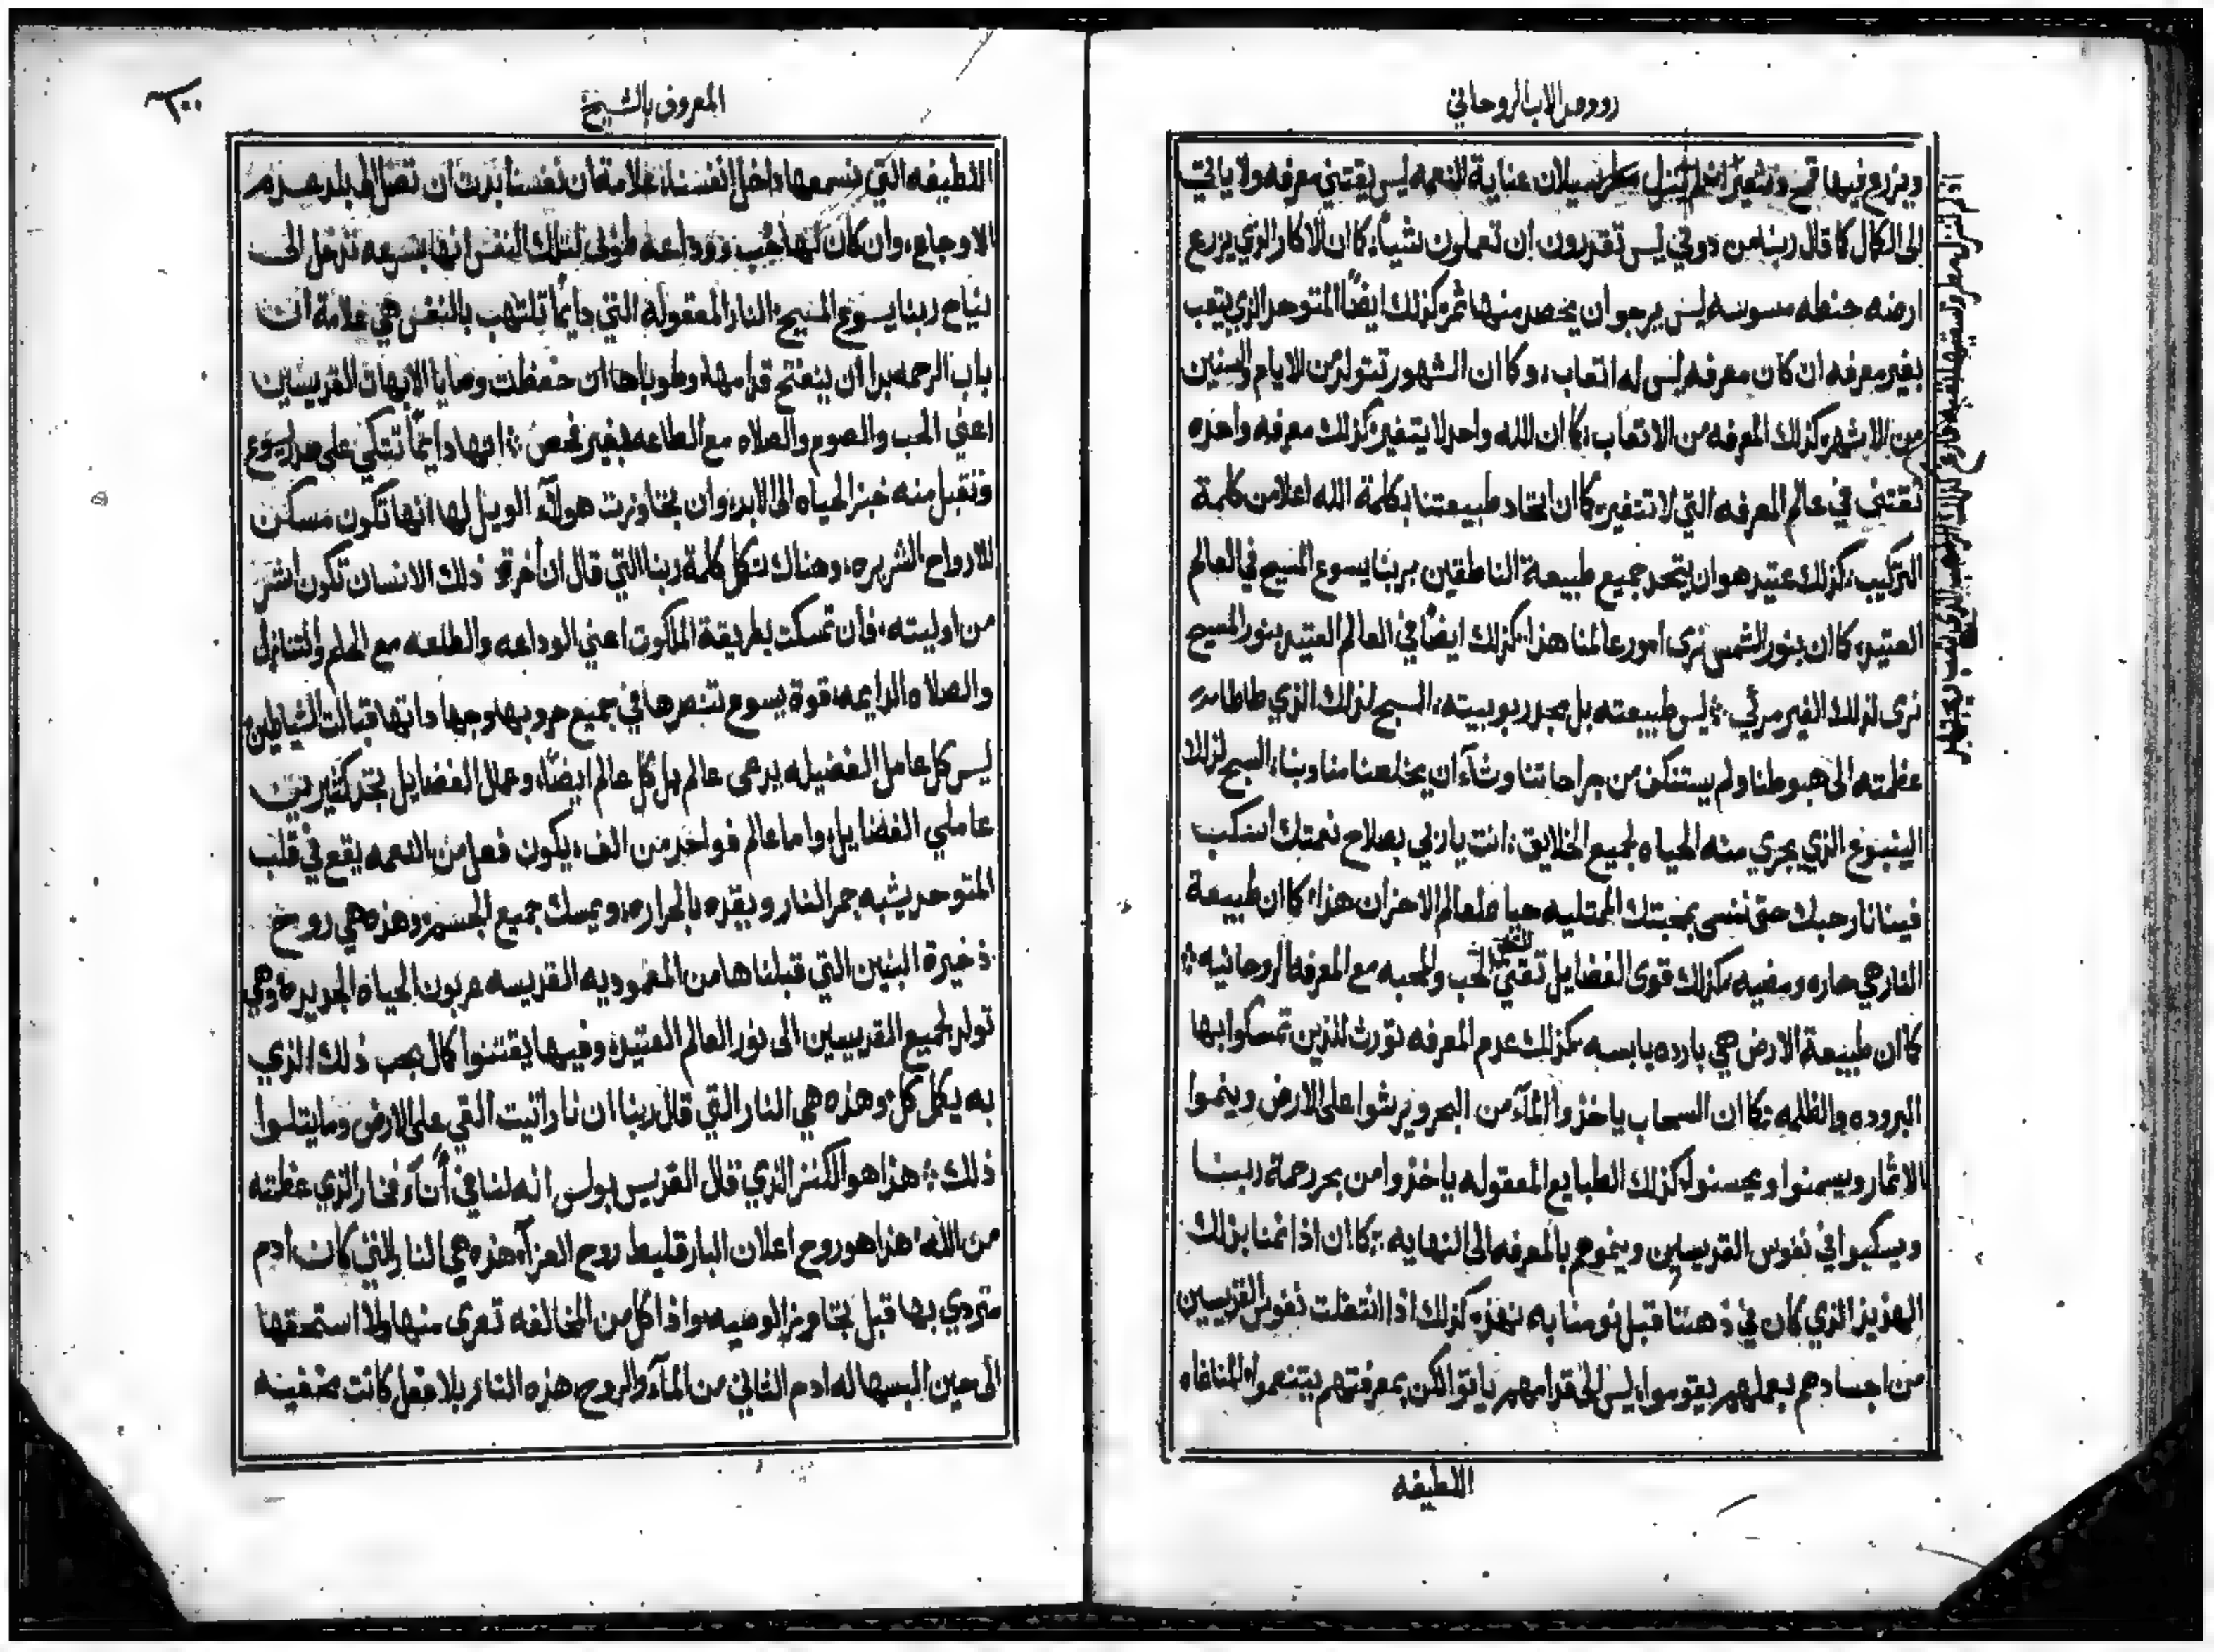 الاب الروحاني
ويزرع فيها قمح وشعير ان لم ينزل مطر سيلان عناية النعمه ليس يقتني معرفه ولا ياتي
الى الكمال كما قال ربنا من دوني ليس تقدرون ان تعملون شياً، كما ان الاكار الذي يزرع
ارضه حنطه مسوسه ليس يرجو ان يحصد منها ثمر كذلك ايضًا المتوحد الذي يتعب
بغير معرفه ان كان معرفه ليس له اتعاب، وكما ان الشهور تتولد من الايام والسنين
من الاشهر كذلك المعرفه من الاتعاب، كما ان الله واحد لا يتغير كذلك معرفه واحده
تقتنى في عالم المعرفه التي لا تتغير، كما ان اتحاد طبيعتنا بكلمة الله اعلا من كلمة
التركيب، كذلك عتيد هو ان يتحد جميع طبيعة الناطقين بربنا يسوع المسيح في العالم
العتيد، كما ان بنور الشمس نرى امور عالمنا هذا، كذلك ايضًا في العالم العتيد بنور المسيح
نرى لذلك الغير مرئي، ليس طبيعته بل مجد ربوبيته، السبح لذلك الذي طاطا من
عظمته الى هبوطنا ولم يستنكف من جراحاتنا وشآء ان يخلصنا منا وبنا، السبح لذلك
الينبوع الذي يجري منه الحياه لجميع الخلايق، انت يا ربي بصلاح نعمتك اسكب
فينا نار حبك حتى ننسى بمحبتك الممتليه حياه لعالم الاحزان هذا، كما ان طبيعة
النار هي حاره ومضيه كذلك قوى الفضايل تقتني الحب والمحبه مع المعرفه الروحانيه
كما ان طبيعة الارض هي بارده يابسه كذلك عدم المعرفه تورث للذين تمسكوا بها
البروده والظلمه، كما ان السحاب ياخذوا المآء من البحر ويرشوا على الارض وينموا
الاثمار ويسمنوا ويحسنوا، كذلك الطبايع المعقوله ياخذوا من بحر رحمة ربنا
ويسكبوا في نفوس القديسين وينموهم بالمعرفه الى النهايه، كما ان اذا نمنا بذلك
الهذيذ الذي كان في ذهننا قبل نومنا به نهذ، كذلك اذا انتقلت نفوس القديسين
من اجسادهم بعملهم يقوموا، ليس الى قدامهم ياتوا لكن بمعرفتهم يتنعموا، المناغاه
اللطيفه
المعروف بالشيخ
٢٠٠
اللطيفه التي نسمعها داخل انفسنا، علامة ان نفسنا بدت ان تصل الى بلد عدم
الاوجاع، وان كان لها حب ووداعه طوبى لتلك النفس انها بسرعه تدخل الى
نياح ربنا يسوع المسيح، النار المعقوله التي دايمًا تلتهب بالنفس هي علامة ان
باب الرحمه بدا ان ينفتح قدامها، وطوباها ان حفظت وصايا الابهات القديسين
اعني الحب والصوم والصلاه مع الطاعه بغير فحص، انها دايمًا تتكي على صدر يسوع
وتقبل منه خبز الحياه الى الابد، وان تجاوزت هولآء الويل لها انها تكون مسكن
للارواح الشريره، وهناك تكمل كلمة ربنا التي قال ان اخرة ذلك الانسان تكون اشر
من اوليته، فان تمسكت بطريقة الملكوت اعني الوداعه والطاعه مع الحلم والتنازل
والصلاه الدايمه، قوة يسوع تنصرها في جميع حروبها وجهاداتها قبالت الشياطين
ليس كل عامل الفضيله يدعى عالم بل كل عالم ايضًا، وعمال الفضايل تجد كثيرين
عاملي الفضايل، واما عالم فواحد من الف، يكون فعل من النعمه يقع في قلب
المتوحد يشبه جمر النار ويقده بالحراره، ويمسك جميع الجسم، وهذه هي روح
ذخيرة البنين التي قبلناها من المعموديه القديسه عربون الحياه الجديده، وهي
تولد لجميع القديسين الى نور العالم العتيد، وفيها يقتنوا كمال بحب ذلك الذي
به يكمل كل، وهذه هي النار التي قال ربنا ان نار اتيت القي على الارض وما يتلوا
ذلك، هذا هو الكنز الذي قال القديس بولس انه لنا في انآء فخار الذي عظمته
من الله، هذا هو روح اعلان البارقليط روح العزآء، هذه هي النار التي كان ادم
متردي بها قبل تجاوز الوصيه، واذا اكل من المخالفه تعرى منها ولا استحقها
الى حين البسها له ادم الثاني من المآء والروح، هذه النار بلا فعل كانت مختفيه